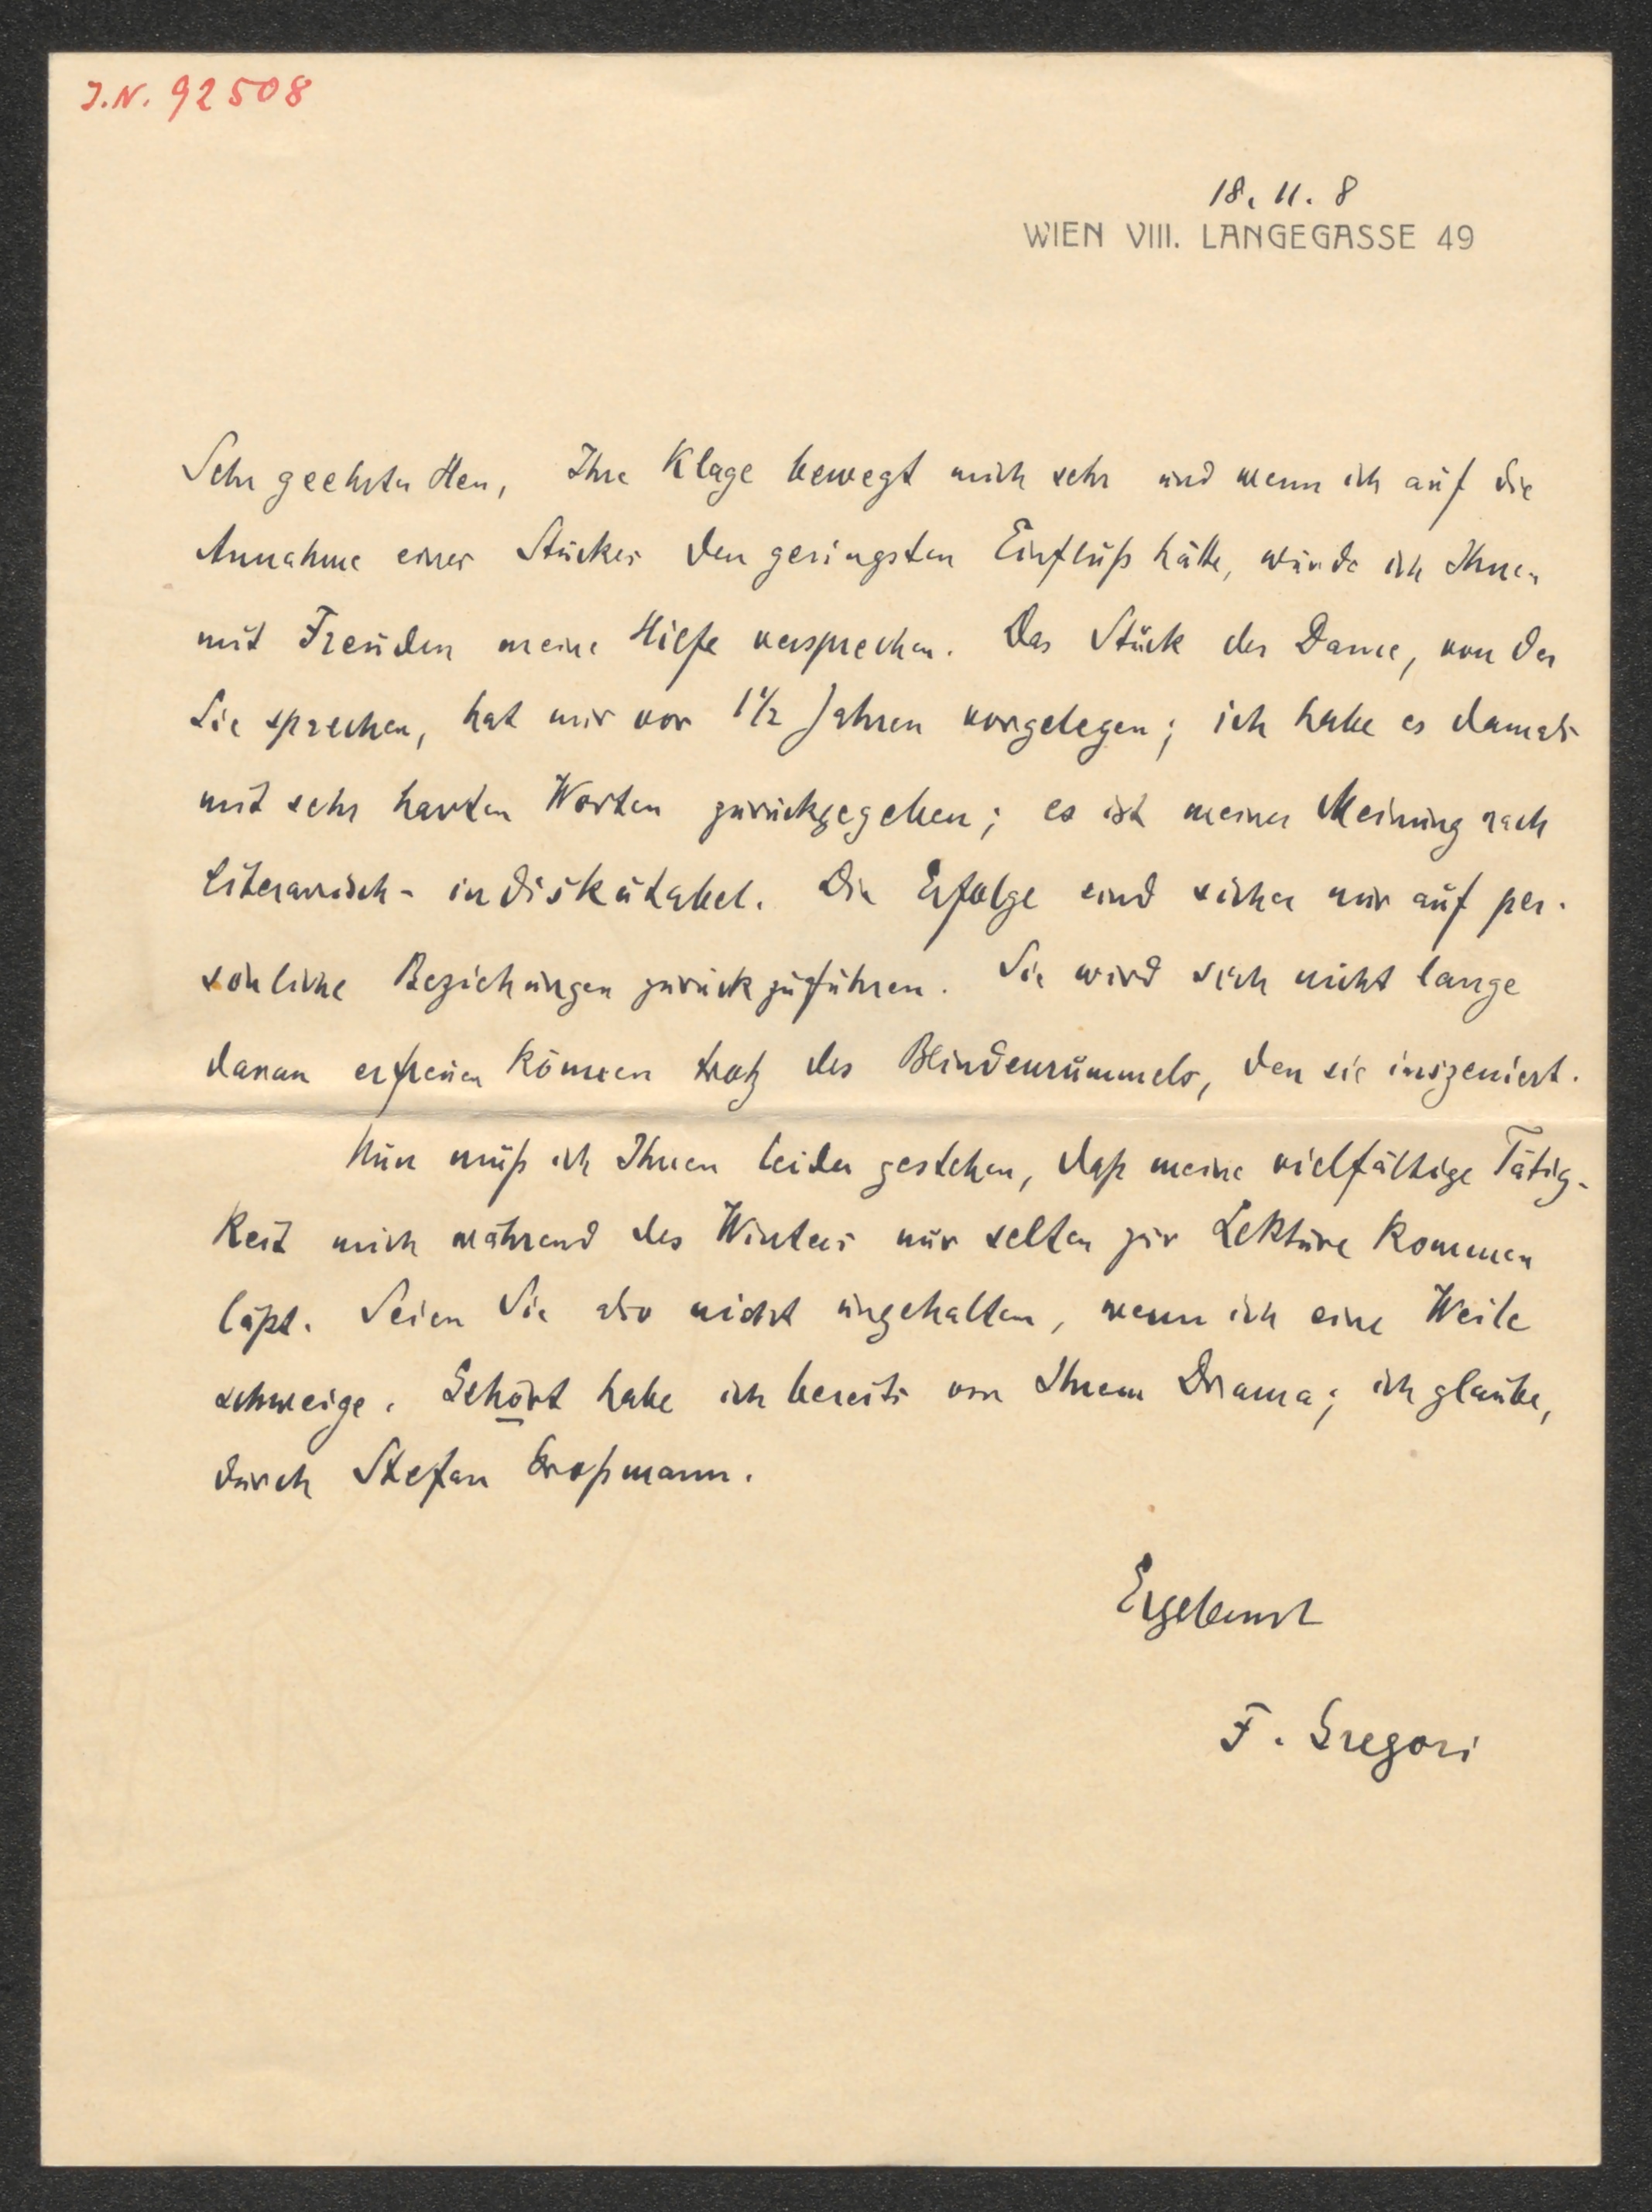 J.N. 92508
18. 11. 8
WIEN VIII. LANGEGASSE 49
Sehr geehrter Herr, Ihre Klage bewegt mich sehr und wenn ich auf die
Annahme eines Stückes den geringsten Einfluß hätte, würde ich Ihnen
mit Freuden meine Hilfe versprechen. Das Stück der Dame, von der
Sie sprechen, hat mir vor 1 1/2 Jahren vorgelegen; ich habe es damals
mit sehr harten Worten zurückgegeben; es ist meiner Meinung nach
literarisch - indiskutabel. Die Erfolge sind sicher nur auf per-
sönliche Beziehungen zurückzuführen. Sie wird sich nicht lange
daran erfreuen können trotz des Blindenrummels, den sie inszeniert.
Nun muß ich Ihnen leider gestehen, daß meine vielfältige Tätig-
keit mich während des Winters nur selten zur Lektüre kommen
läßt. Seien Sie also nicht ungehalten, wenn ich eine Weile
schweige. Gehört habe ich bereits von Ihrem Drama; ich glaube,
durch Stefan Großmann.
Ergebenst
F. Gregori